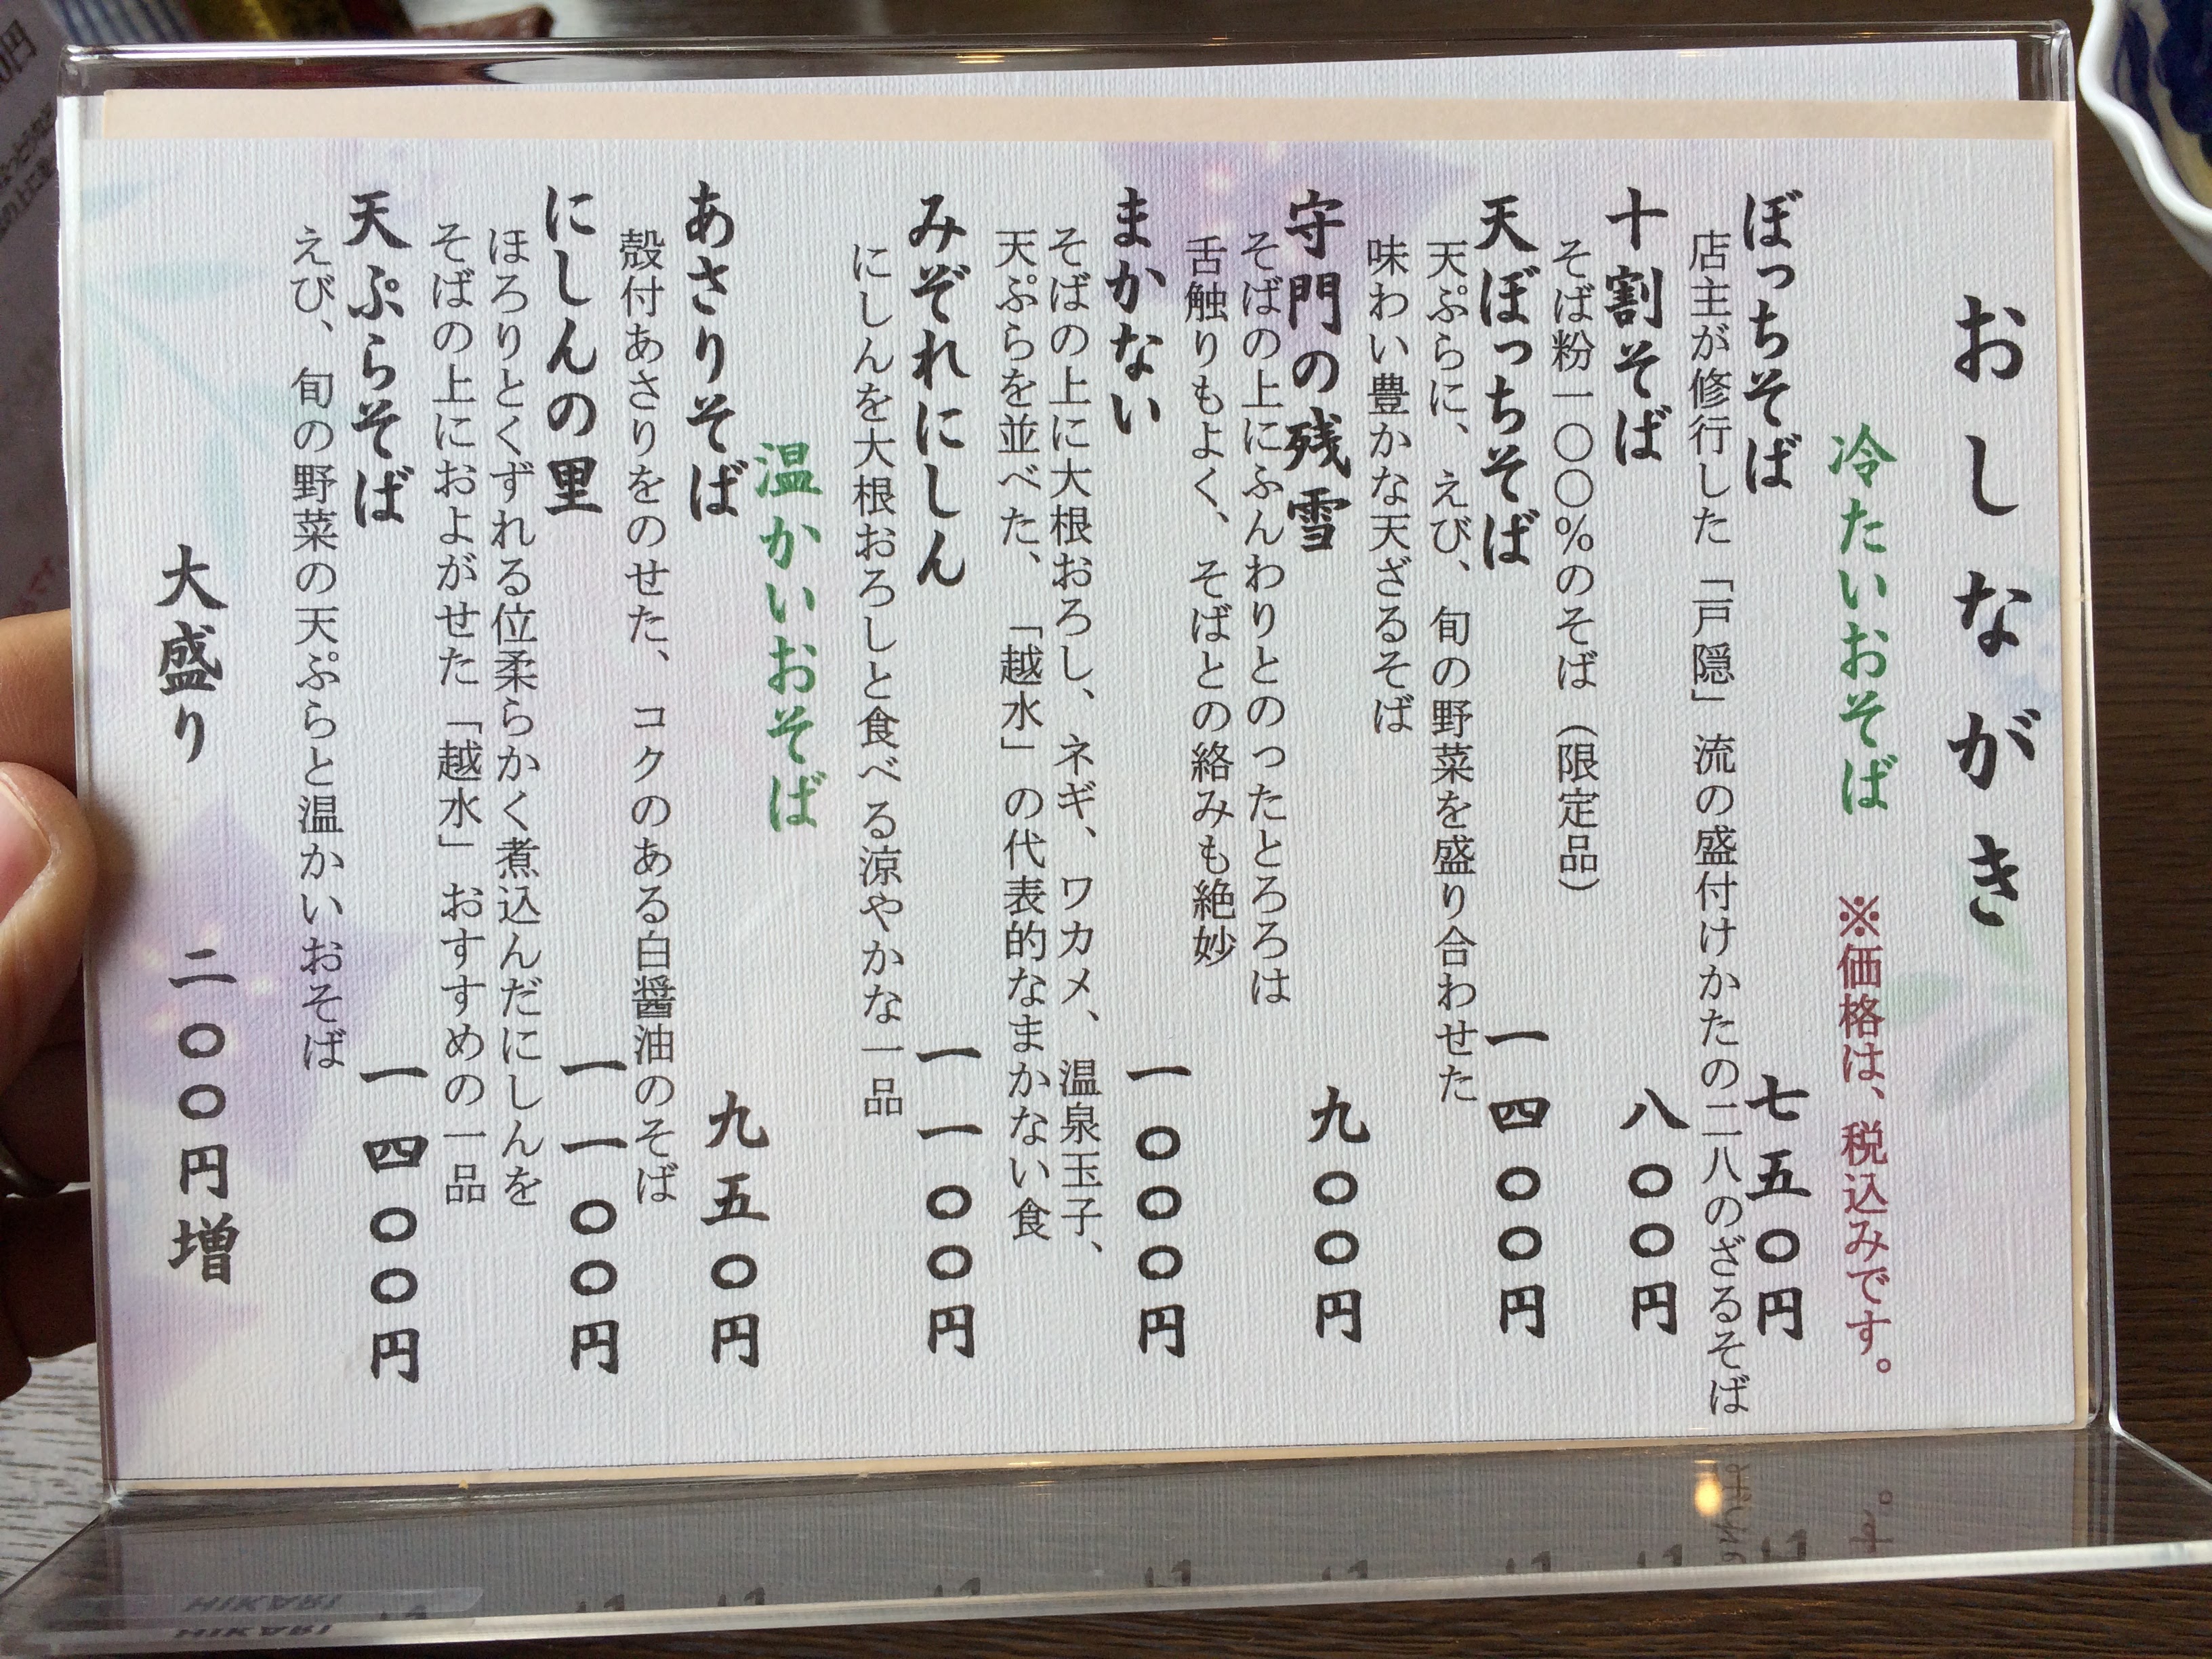 おしながき
冷たいおそば ※価格は、税込みです。
ぼっちそば 七五〇円
店主が修行した「戸隠」流の盛付けかたの二八のざるそば
十割そば 八〇〇円
そば粉一〇〇%のそば（限定品）
天ぼっちそば 一四〇〇円
天ぷらに、えび、旬の野菜を盛り合わせた
味わい豊かな天ざるそば
守門の残雪 九〇〇円
そばの上にふんわりとのったとろろは
舌触りもよく、そばとの絡みも絶妙
まかない 一〇〇〇円
そばの上に大根おろし、ネギ、ワカメ、温泉玉子、
天ぷらを並べた、「越水」の代表的なまかない食
みぞれにしん 一一〇〇円
にしんを大根おろしと食べる涼やかな一品
温かいおそば
あさりそば 九五〇円
殻付あさりをのせた、コクのある白醤油のそば
にしんの里 一一〇〇円
ほろりとくずれる位柔らかく煮込んだにしんを
そばの上におよがせた「越水」おすすめの一品
天ぷらそば 一四〇〇円
えび、旬の野菜の天ぷらと温かいおそば
大盛り 二〇〇円増
HIKARI